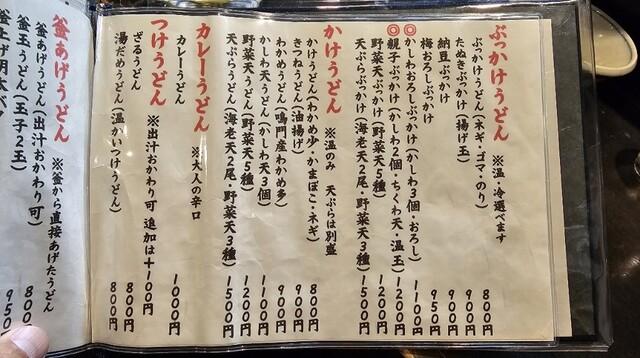 ぶっかけうどん ※温・冷選べます
ぶっかけうどん(ネギ・ゴマ・のり) 800円
たぬきぶっかけ(揚げ玉) 900円
納豆ぶっかけ 900円
梅おろしぶっかけ 950円
◎かしわおろしぶっかけ(かしわ3個・おろし) 1100円
◎親子ぶっかけ(かしわ2個・ちくわ天・温玉) 1200円
野菜天ぶっかけ(野菜天5種) 1200円
天ぷらぶっかけ(海老天2尾・野菜天3種) 1500円
かけうどん ※温のみ 天ぷらは別盛
かけうどん(わかめ少・かまぼこ・ネギ) 800円
きつねうどん(油揚げ) 900円
わかめうどん(鳴門産わかめ多) 900円
かしわ天うどん(かしわ天3個) 1100円
野菜天うどん(野菜天5種) 1200円
天ぷらうどん(海老天2尾・野菜天3種) 1500円
カレーうどん ※大人の辛口
カレーうどん 1000円
つけうどん ※出汁おかわり可 追加は+100円
ざるうどん 800円
湯だめうどん(温かいつけうどん) 800円
釜あげうどん ※釜から直接あげたうどん
釜あげうどん(出汁おかわり可) 800
釜玉うどん(玉子2玉) 950
釜上げ明太バ